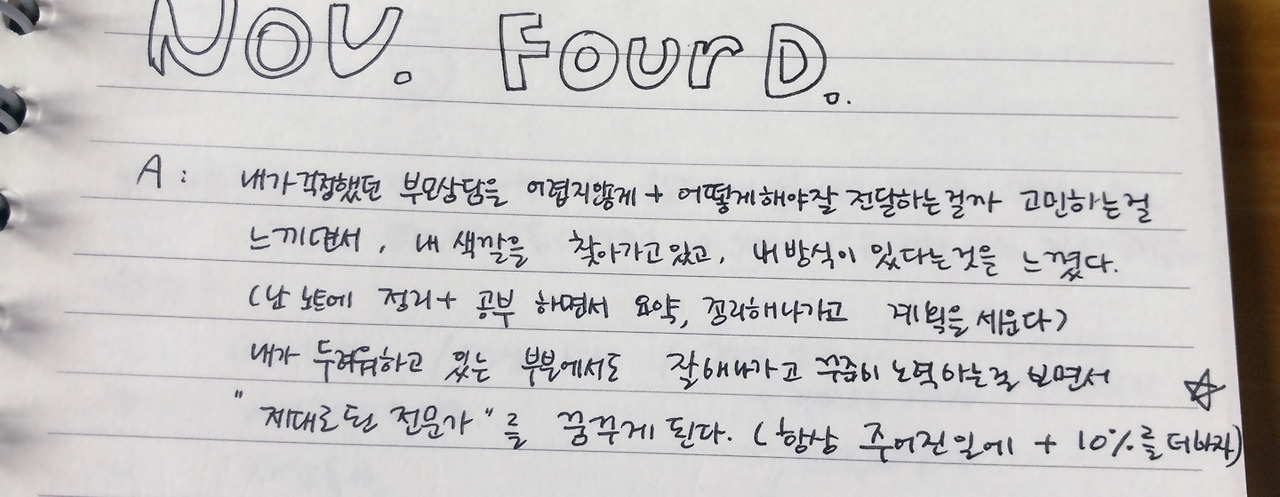 Nov. Four D..
A : 내가걱정했던 부모상담을 어렵지않게 + 어떻게해야잘 전달하는걸까 고민하는걸
느끼면서, 내 색깔을 찾아가고있고, 내방식이 있다는것을 느꼈다.
(난 노트에 정리+ 공부 하면서 요약, 정리해나가고 계획을 세운다)
내가 두려워하고 있는 부분에서도 잘해나가고 꾸준히 노력하는걸 보면서 ☆
"제대로된 전문가"를 꿈꾸게 된다. (항상 주어진일에 + 10%를 더하자)